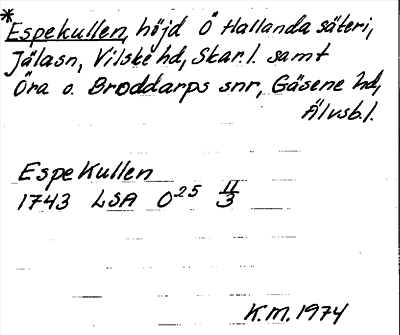 *Espekullen, höjd Ö Hallanda säteri,
Jälasn, Vilske hd, Skar.l. samt
Öra o. Broddarps snr, Gäsene hd,
Älvsb.l.
Espekullen
1743 LSA O25 II/3
K.M. 1974